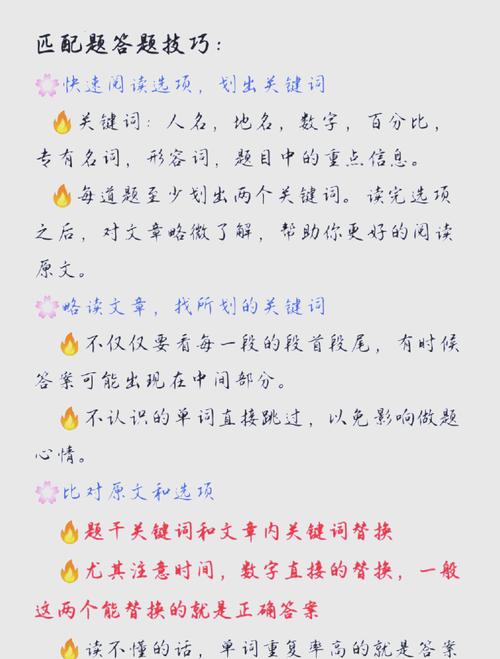 匹配题答题技巧：
🌸快速阅读选项，划出关键词
🔥关键词：人名，地名，数字，百分比，
专有名词，形容词，题目中的重点信息。
🔥每道题至少划出两个关键词。读完选项
之后，对文章略微了解，帮助你更好的阅读
原文。
🌸略读文章，找所划的关键词
🔥不仅仅要看每一段的段首段尾，有时候
答案可能出现在中间部分。
🔥不认识的单词直接跳过，以免影响做题
心情。
🌸比对原文和选项
🔥题干关键词和文章内关键词替换
🔥尤其注意时间，数字直接的替换，一般
这两个能替换的就是正确答案
🔥读不懂的话，单词重复率高的就是答案